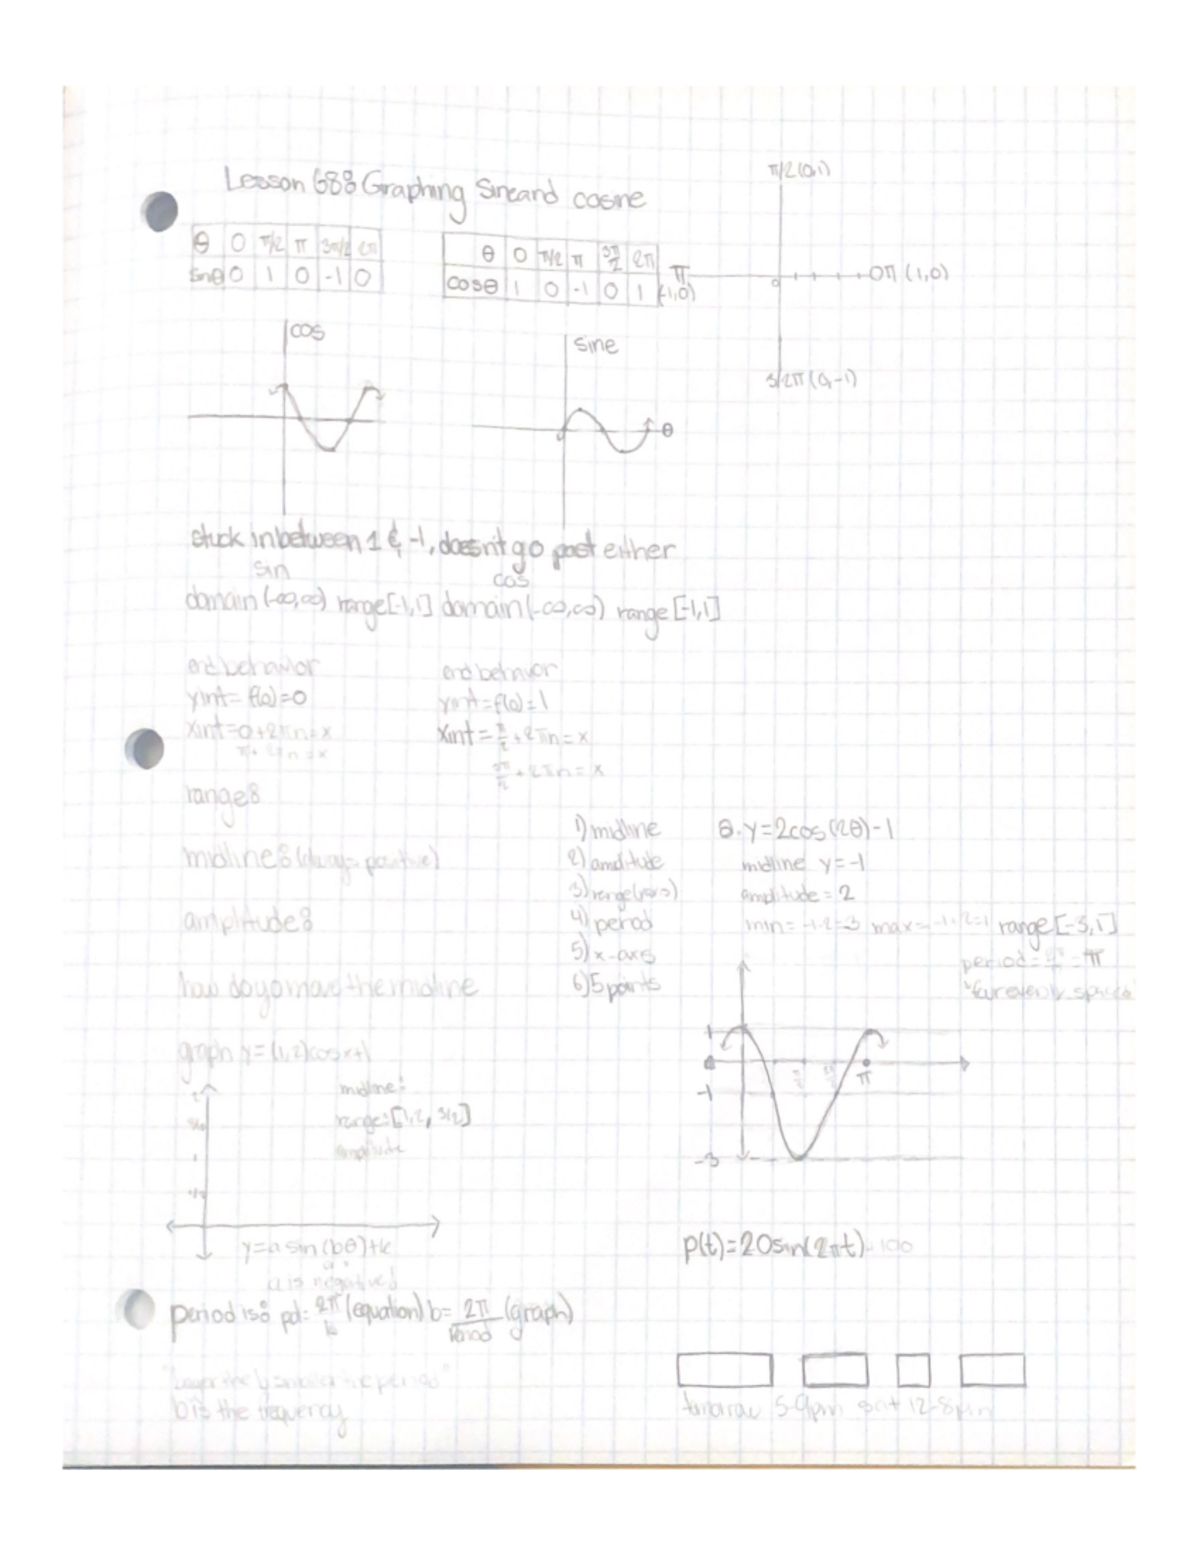 Lesson 6.8: Graphing Sine and cosine
π/2 (0,1)
θ 0 π/2 π 3π/2 2π
sinθ 0 1 0 -1 0
θ 0 π/2 π 3π/2 2π
cosθ 1 0 -1 0 1
π
(-1,0)
0π (1,0)
3/2π (0,-1)
cos
sine
θ
stuck in between 1 & -1, doesn't go past either
sin cos
domain (-∞,∞) range [-1,1] domain (-∞,∞) range [-1,1]
end behavior
yint = f(0)=0
xint = 0+2πn = x
π + 2πn = x
end behavior
yint = f(0)=1
xint = π/2 + 2πn = x
3π/2 + 2πn = x
range:
midline: (always positive)
amplitude:
how do yo move the midline
1) midline
2) amplitude
3) range
4) period
5) x-axis
6) 5 points
θ. y=2cos(2θ)-1
midline y=-1
amplitude = 2
min = -1-2=-3 max = -1+2=1 range [-3,1]
period = = π
spaces
graph y = (1/2)cosx+1
midline:
range: [1/2, 3/2]
amplitude
1
y=a sin(bθ)+k
a is negative
1
-1
-3
π/2
π
p(t)=20sin(2πt) 100
period is: pd = 2π/b (equation) b = 2π/Period (graph)
"Larger the b smaller the period"
b is the frequency
5-9pm sat 12-8pm